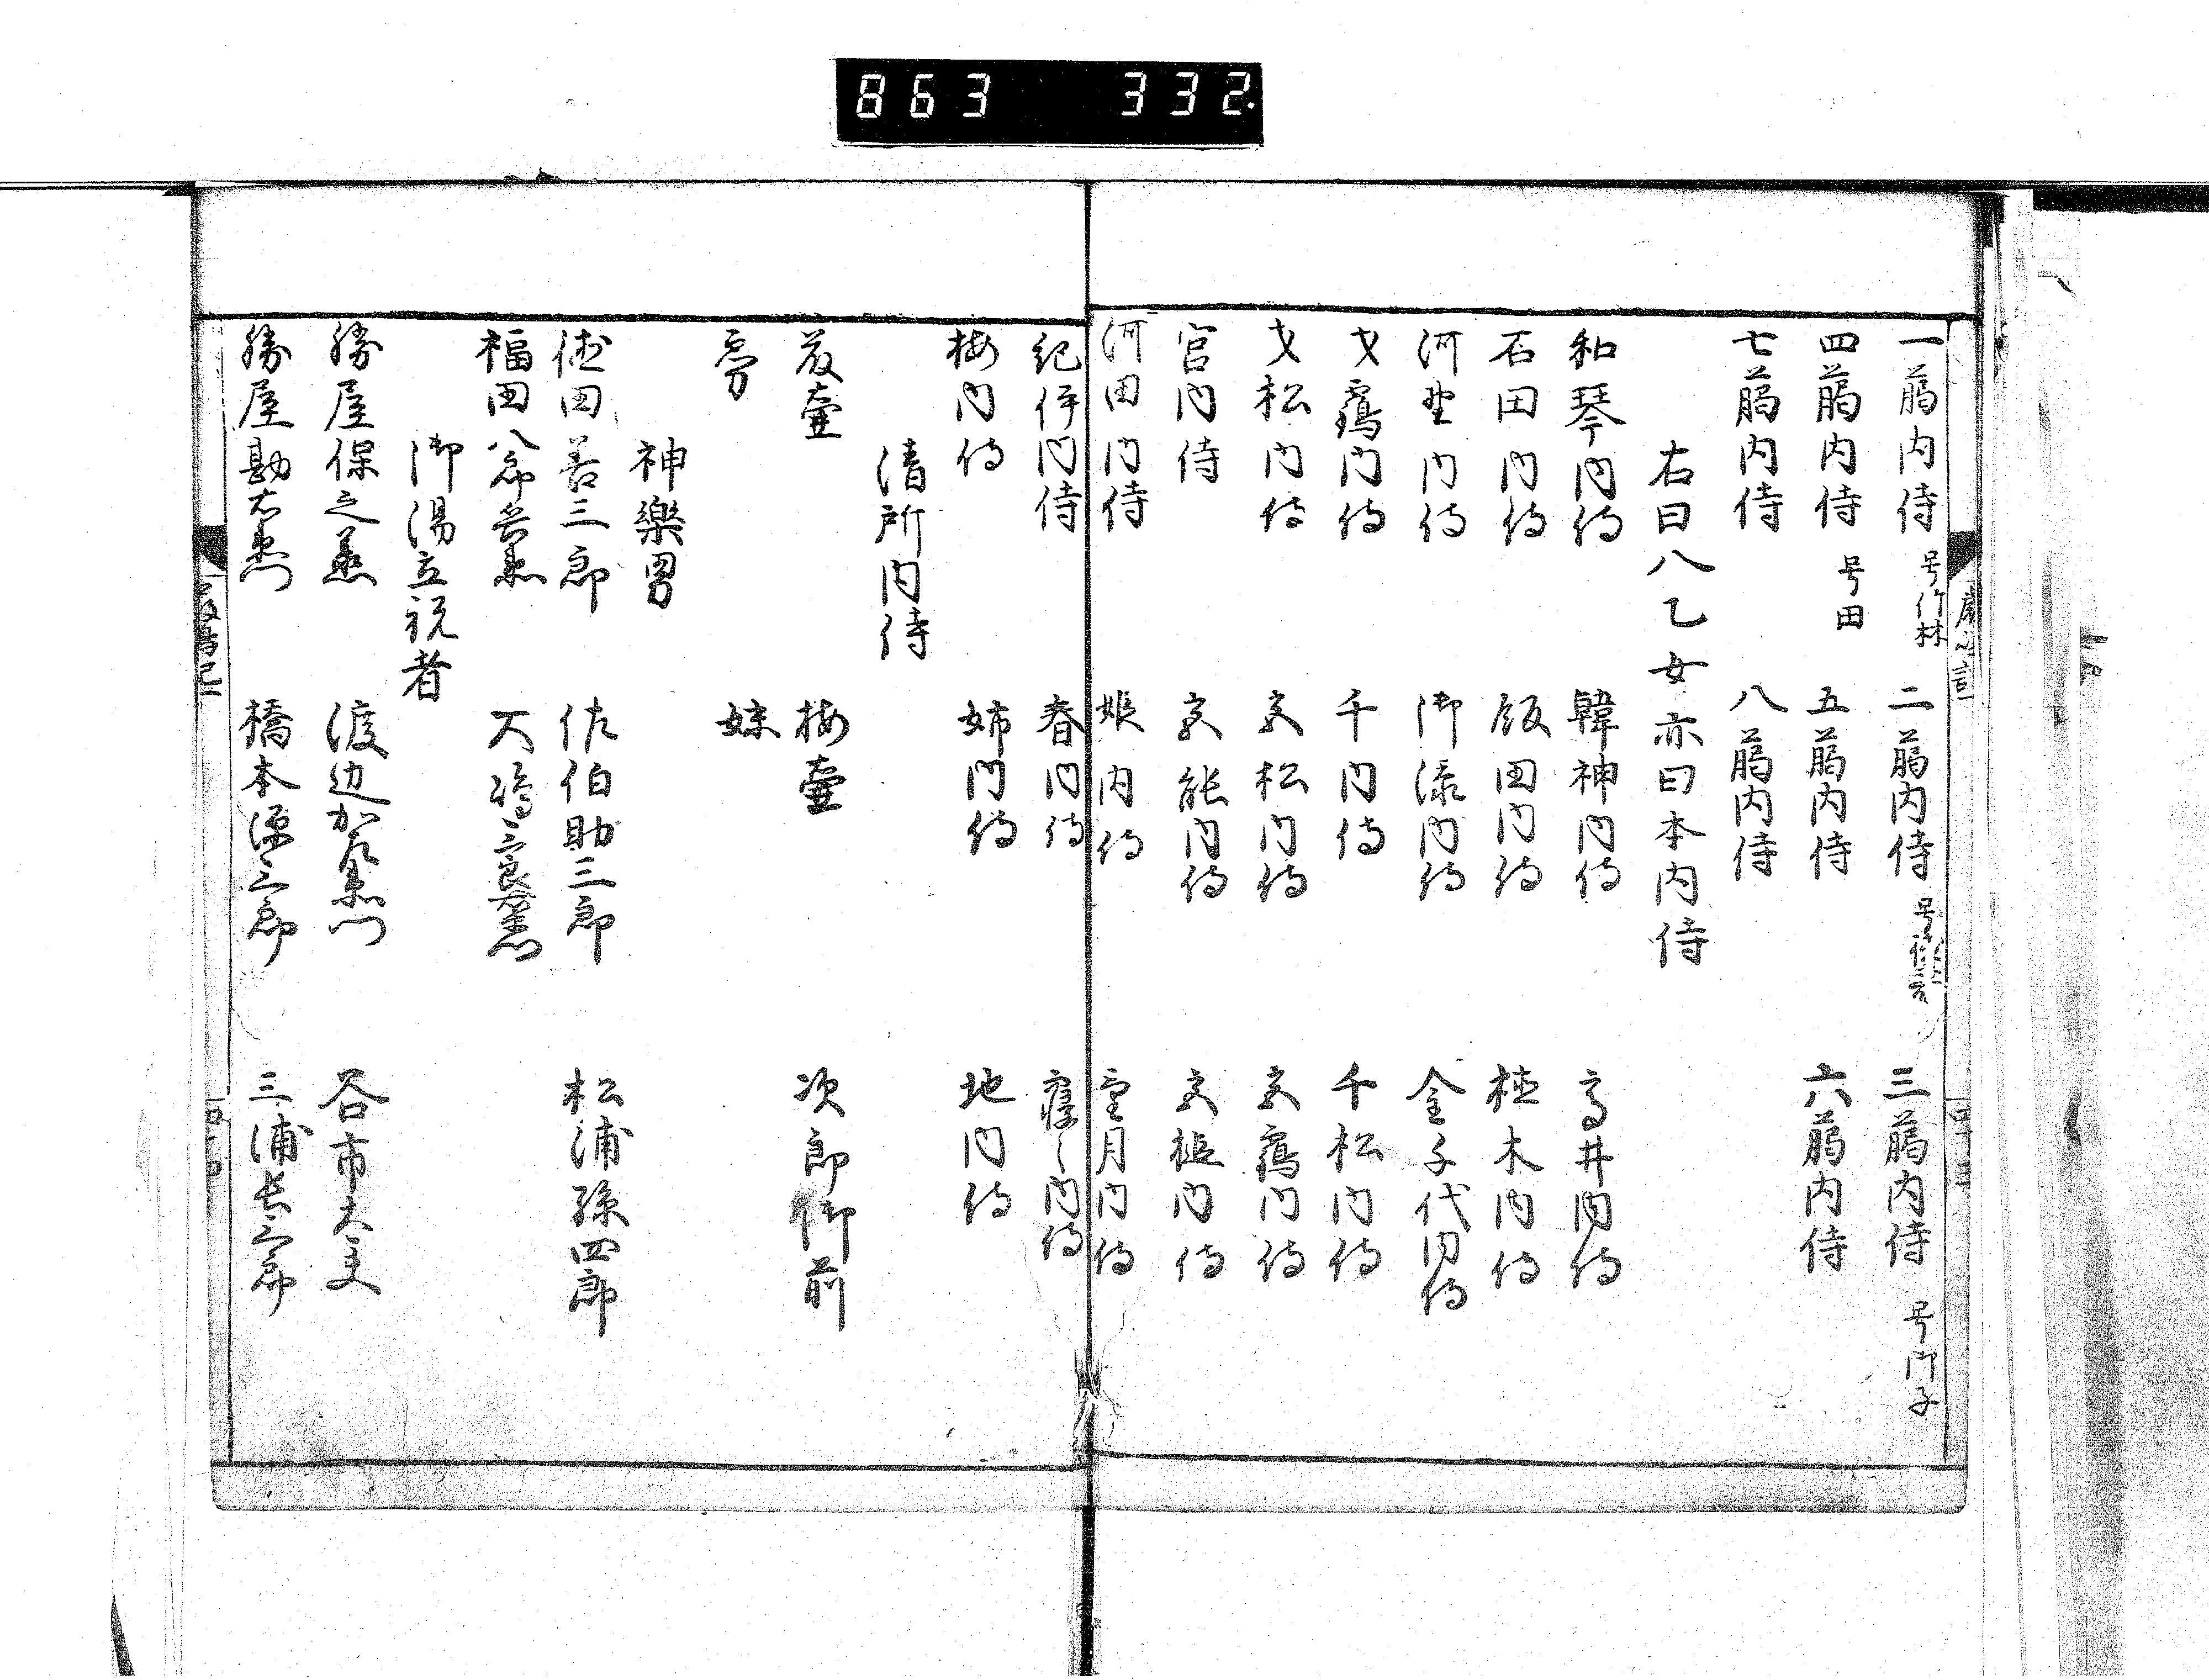 863 332.
一﨟内侍 号竹林 二﨟内侍 三﨟内侍 号御子
四﨟内侍 号田 五﨟内侍 六﨟内侍
七﨟内侍 八﨟内侍
右曰八乙女亦曰本内侍
和琴内侍 韓神内侍 高井内侍
石田内侍 飯田内侍 植木内侍
河野内侍 御添内侍 金子代内侍
才鶴内侍 千内侍 千松内侍
才松内侍 文松内侍 文鶴内侍
宮内侍 文能内侍 内侍
河田内侍 姫内侍 望月内侍
紀伊内侍 春内侍 内侍
梅内侍 姉内侍 地内侍
清所内侍
藤壷 梅壷 次郎御前
妹
神樂男
徳田善三郎 佐伯助三郎 松浦孫四郎
福田八郎兵衛 大嶋三良兵衛
御湯立祝者
勝屋保之丞 渡辺加右衛門 谷市太夫
勝屋勘右衛門 橋本源三郎 三浦長三郎